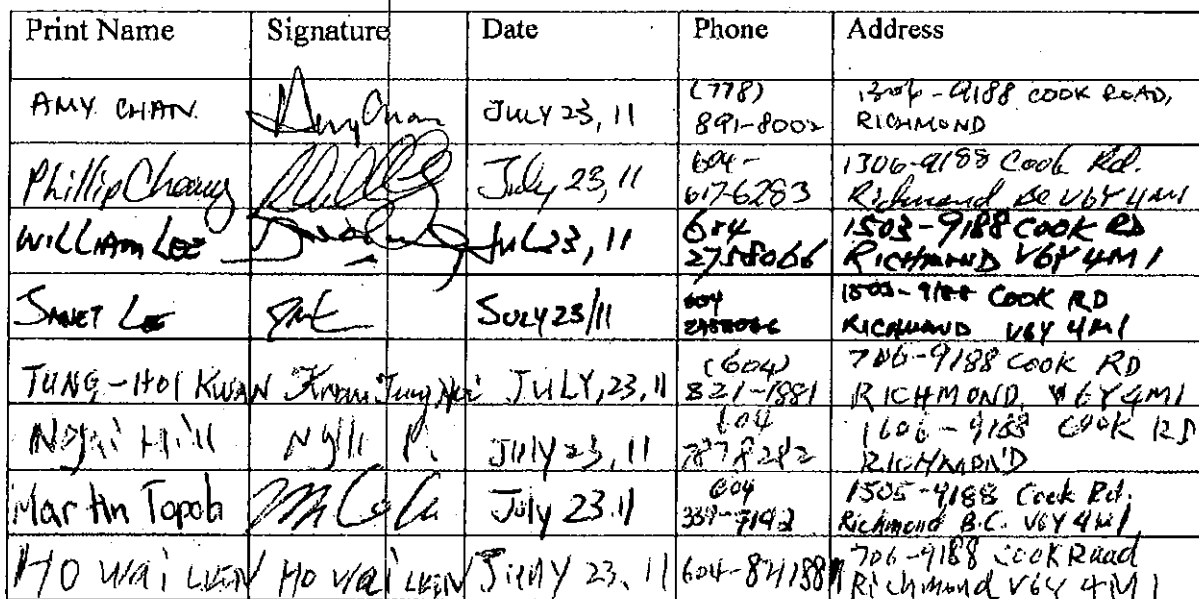 Print Name Signature Date Phone Address
AMY CHAN. Amy Chan JULY 23, 11 (778) 891-8002 1304-9188 COOK ROAD, RICHMOND
Phillip Cheung July 23, 11 604-617-6283 1306-9188 Cook Rd. Richmond BC V6Y 4M1
WILLIAM LEE JUL 23, 11 604 2758066 1503-9188 COOK RD RICHMOND V6Y 4M1
JANET LEE JULY 23/11 604 1503-9188 COOK RD RICHMOND V6Y 4M1
TUNG-HOI KWAN Kwan Tung Hoi JULY, 23, 11 (604) 821-1881 706-9188 COOK RD RICHMOND, V6Y4M1
JULY 23, 11 604 7878282 1606-9188 COOK RD RICHMOND
Martin July 23.11 604 1505-9188 Cook Rd. Richmond B.C. V6Y 4M1
HO Wai LUEN HO Wai LUEN JULY 23, 11 604-8211881 706-9188 Cook Road Richmond V6Y 4M1